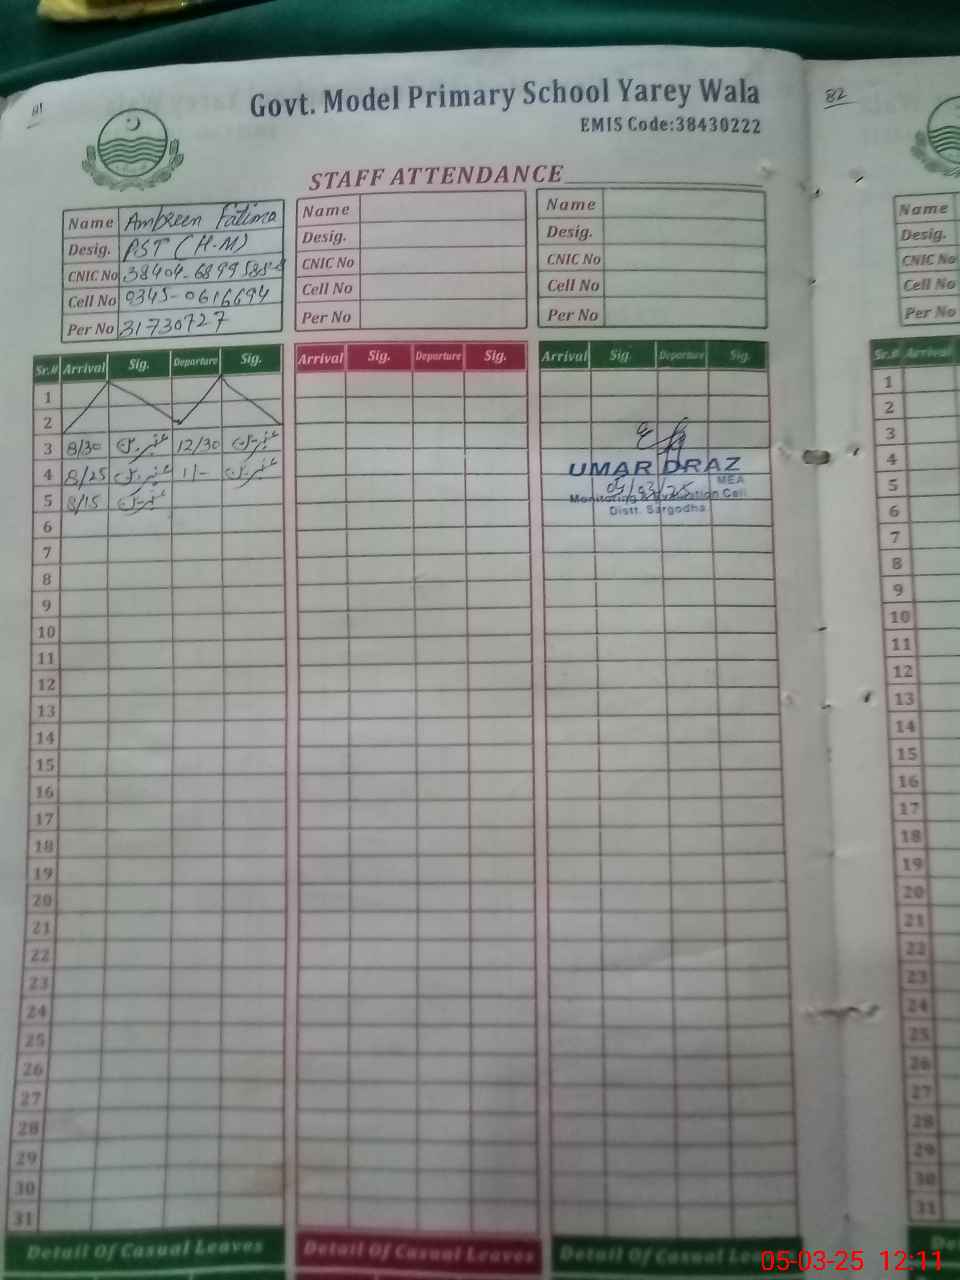 81
Govt. Model Primary School Yarey Wala
EMIS Code:38430222
STAFF ATTENDANCE
Name Ambreen Fatima
Desig. PST (H-M)
CNIC No
Cell No 0345-0616694
Per No 31730727
Name
Desig.
CNIC No
Cell No
Per No
Name
Desig.
CNIC No
Cell No
Per No
Sr.# Arrival Sig. Departure Sig. Arrival Sig. Departure Sig. Arrival Sig. Departure Sig.
1
2
3 8/30 عنبرین 12/30 عنبرین
4 8/25 عنبرین 1/- عنبرین
5 8/15 عنبرین
UMAR DRAZ
MEA
05/03/25
Monitoring & Evaluation Cell
Distt. Sargodha
6
7
8
9
10
11
12
13
14
15
16
17
18
19
20
21
22
23
24
25
26
27
28
29
30
31
Detail Of Casual Leaves Detail Of Casual Leaves Detail Of Casual
82
Name
Desig.
CNIC No
Cell No
Per No
Sr.# Arrival
1
2
3
4
5
6
7
8
9
10
11
12
13
14
15
16
17
18
19
20
21
22
23
24
25
26
27
28
29
30
31
05-03-25 12:11